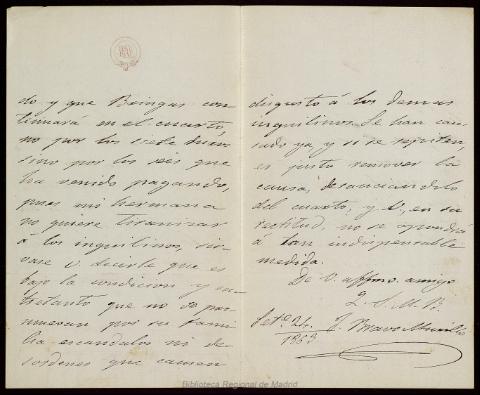 do y que Bringas con
tinuará en el cuarto,
no por los siete duros
sino por los seis que
ha venido pagando,
pues mi hermana
no quiere tiranizar
á los inquilinos, sir-
vase V. decirle que es
bajo la condicion y en-
tretanto que no se pro-
muevan por su fami
lia escandalos ni de-
sordenes que causen
disgusto á los demas
inquilinos. Se han cau-
sado ya, y si se repiten,
es justo remover la
causa, desauciandolo
del cuarto, y V., en su
rectitud, no se opondrá
á tan indispensable
medida.
De V. affmo. amigo
Q. S. M. B.
Set.e 24
J. Bravo Murillo
Biblioteca Regional de Madrid